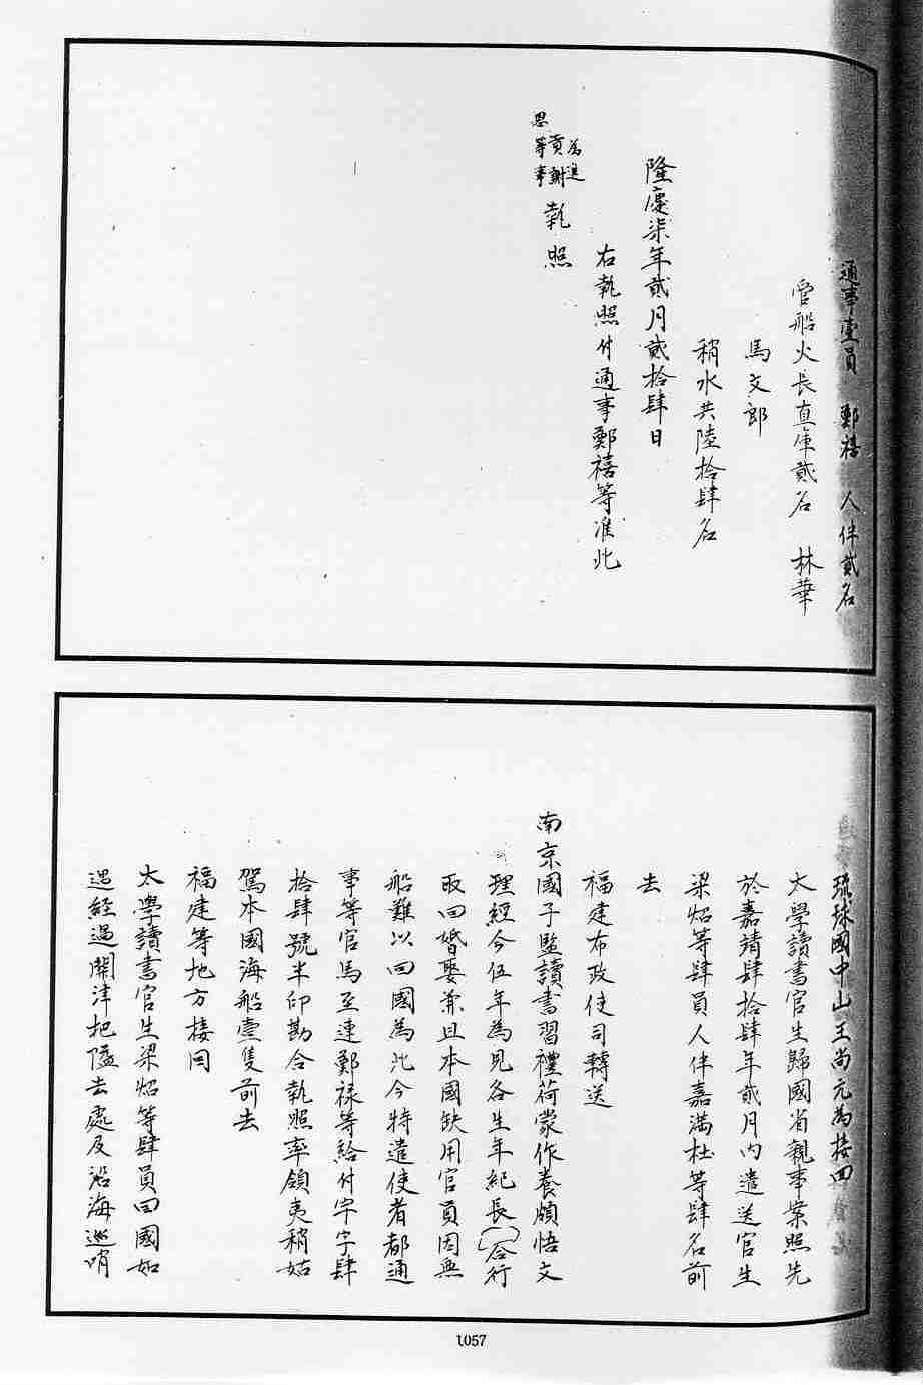 通事壹員　鄭禧　人伴貳名
管船火長直庫貳名　林華
馬文郎
稍水共陸拾肆名
隆慶柒年貳月貳拾肆日
右執照付通事鄭禧等准此
為進
貢謝
恩等事
執照
琉球國中山王尚元為接回
太學讀書官生歸國省親事案照先
於嘉靖肆拾肆年貳月內遣送官生
梁炤等肆員人伴嘉滿杜等肆名前
去
福建布政使司轉送
南京國子監讀書習禮荷蒙作養頗悟文
理經今伍年為見各生年紀長（）合行
取回婚娶兼且本國缺用官員因無
船難以回國為此今特遣使者都通
事等官馬至連鄭祿等給付字字肆
拾肆號半印勘合執照率領夷稍姑
駕本國海船壹隻前去
福建等地方接回
太學讀書官生梁炤等肆員回國如
遇經過關津把隘去處及沿海巡哨
1057